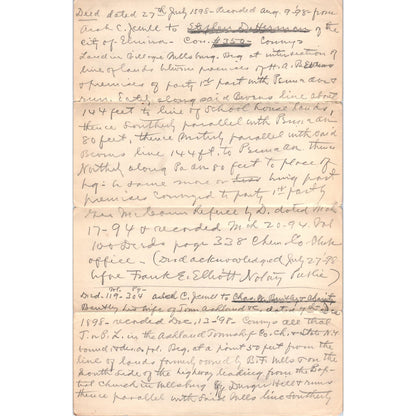 Deed dated 27th July 1898 - Recorded Aug. 9-98 from
C. Jewell to Stephen D. Herman of
the city of Elmira - Con. $350 - Conveys
Land in Village Wellsburg. Beg at intersection of
line of lands between premises of H. A. Evans
& premises of party 1st part with Penna ave
run. along said line about
144 feet to line of School house lands,
thence Southerly parallel with Penna an
80 feet, thence Westerly parallel with said
line 144 ft. to Penna an. thence
Northerly along Pa an 80 feet to place of
beg - same more or less being part
premises conveyed to party 1st party
Geo. Mc Referee by D. dated Mch
17-94 & recorded Mch 20-94. Vol
100 Deeds page 338 Chem. Co. Clerks
office - (Deed acknowledged July 27-98
before Frank E. Elliott Notary Public)
Vol. Pg.
Deed. 119-304 C. Jewell to Chas. W. Bentley &
Bentley his wife of Town Ashland dated Dec
1898 - recorded Dec. 12-98 Conveys all that
T. or P. L. in the Ashland Township Co. Ch. & State N.Y.
bound & des. as fol. Beg. at a point 50 feet from the
line of lands formerly owned by Wells on the
North side of the highway leading from the Bap-
tist Church in Wellsburg By Hill & runs
thence parallel with said Wells line Southerly